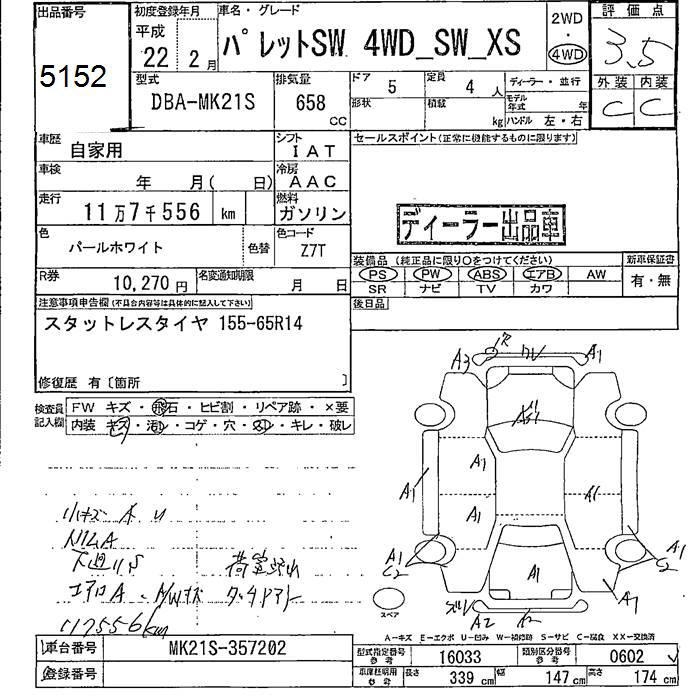 出品番号
5152
初度登録年月
平成
22 2月
車名・グレード
パレットSW 4WD_SW_XS
2WD
・
4WD
評価点
3.5
外装 内装
C C
型式
DBA-MK21S
排気量
658
CC
ドア 5
定員 4人
形状
積載 kg
ディーラー・並行
モデル年式 年
ハンドル 左・右
車歴
自家用
シフト
IAT
車検
年 月( 日)
冷房
AAC
走行
11万7千556 km
燃料
ガソリン
色
パールホワイト
色替
色コード
Z7T
R券
10,270円
名変通知期限
月 日
セールスポイント(正常に機能するものに限ります)
ディーラー出品車
装備品(純正品に限り○をつけてください)
PS PW ABS エアB AW
SR ナビ TV カワ
新車保証書
有・無
後日品
注意事項申告欄(不具合内容等は具体的に記入して下さい)
スタットレスタイヤ 155-65R14
修復歴 有〔箇所 〕
検査員記入欄
FW キズ・飛石・ヒビ割・リペア跡・×要
内装 キズ・汚レ・コゲ・穴・スレ・キレ・破レ
A3
A1
A1
A1
A1
A1
A1
C2
A1
C2
A1
A1
A2
117556km
スペア
A-キズ E-エクボ U-凹み W-補修跡 S-サビ C-腐食 XX-交換済
車台番号
MK21S-357202
登録番号
型式指定番号
参考
16033
類別区分番号
参考
0602
車庫証明用
参考
長さ 339 cm
幅 147 cm
高さ 174 cm